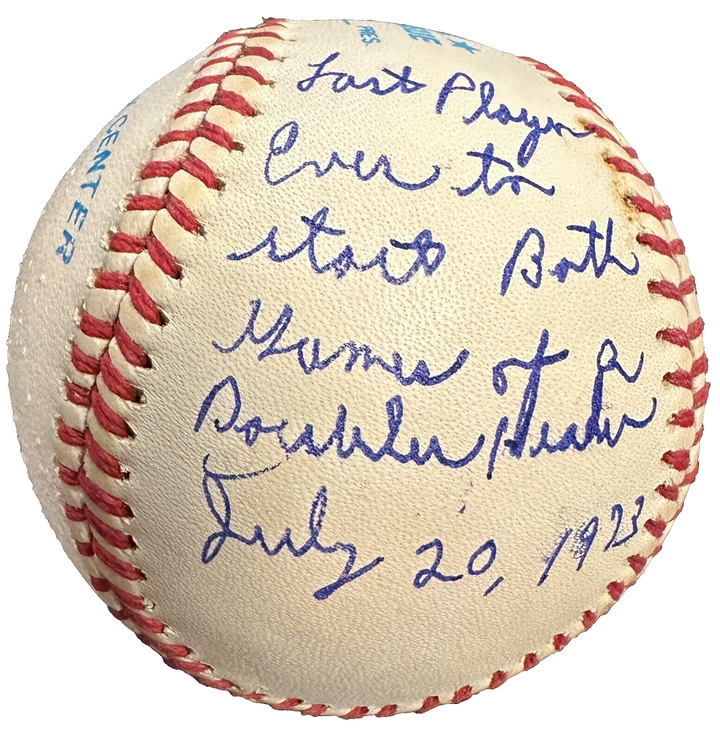 PRES.
CENTER
Last Player
Ever to
start Both
Games of a
Doubleheader
July 20, 1973